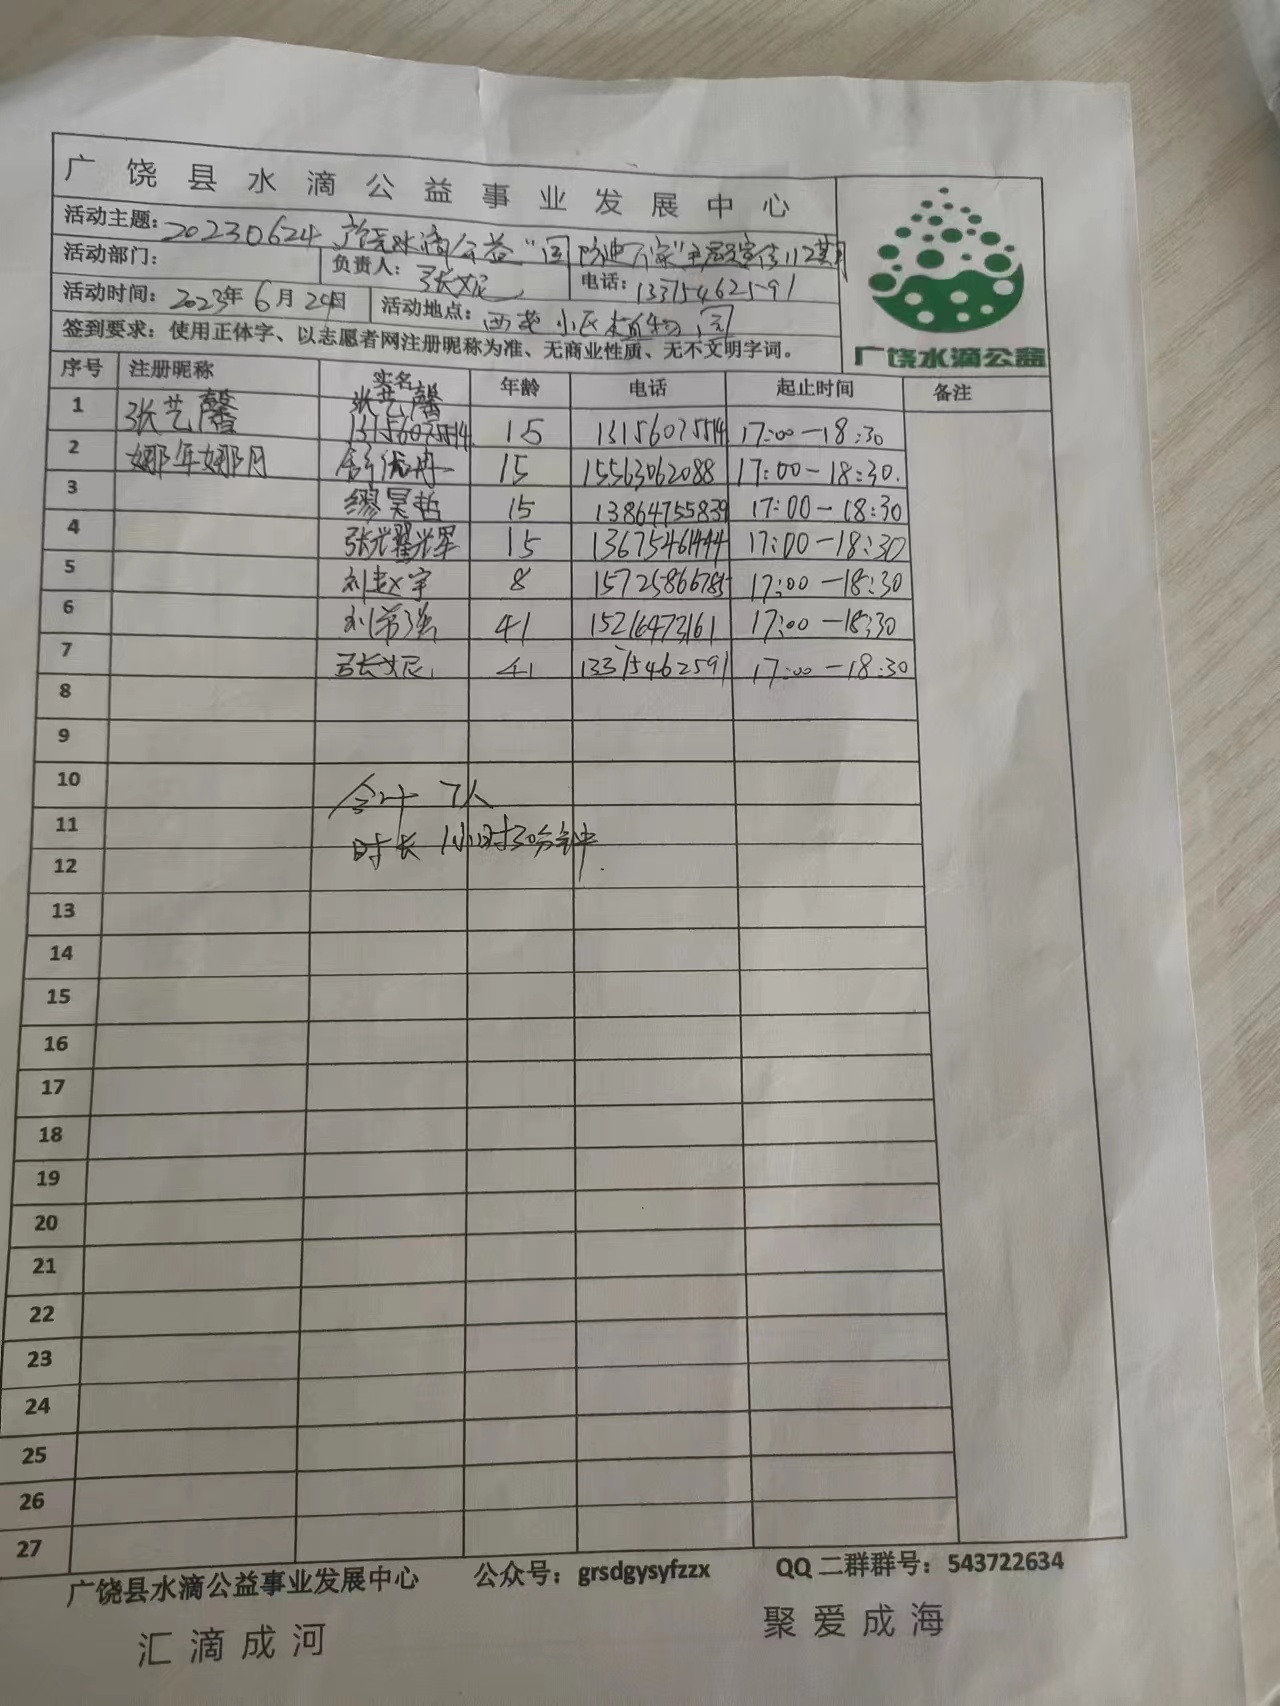 广饶县水滴公益事业发展中心
活动主题：20230624广饶水滴公益"国防进万家"主题宣传112期
活动部门： 负责人：张文妮 电话：13375462591
活动时间：2023年6月24日 活动地点：西苑小区植物园
签到要求：使用正体字、以志愿者网注册昵称为准、无商业性质、无不文明字词。
广饶水滴公益
序号 注册昵称 实名 年龄 电话 起止时间 备注
1 张艺馨 张艺馨 13156075514 15 13156075514 17:00-18:30
2 娜年娜月 15 15563062088 17:00-18:30.
3 缪昊哲 15 13864755839 17:00-18:30
4 15 13675461444 17:00-18:30
5 刘赵宇 8 15725866785 17:00-18:30
6 41 15216473161 17:00-18:30
7 张文妮 41 13375462591 17:00-18:30
8
9
10
合计 7人
11
时长 1小时30分钟.
12
13
14
15
16
17
18
19
20
21
22
23
24
25
26
27
广饶县水滴公益事业发展中心 公众号：grsdgysyfzzx QQ 二群群号：543722634
汇滴成河 聚爱成海